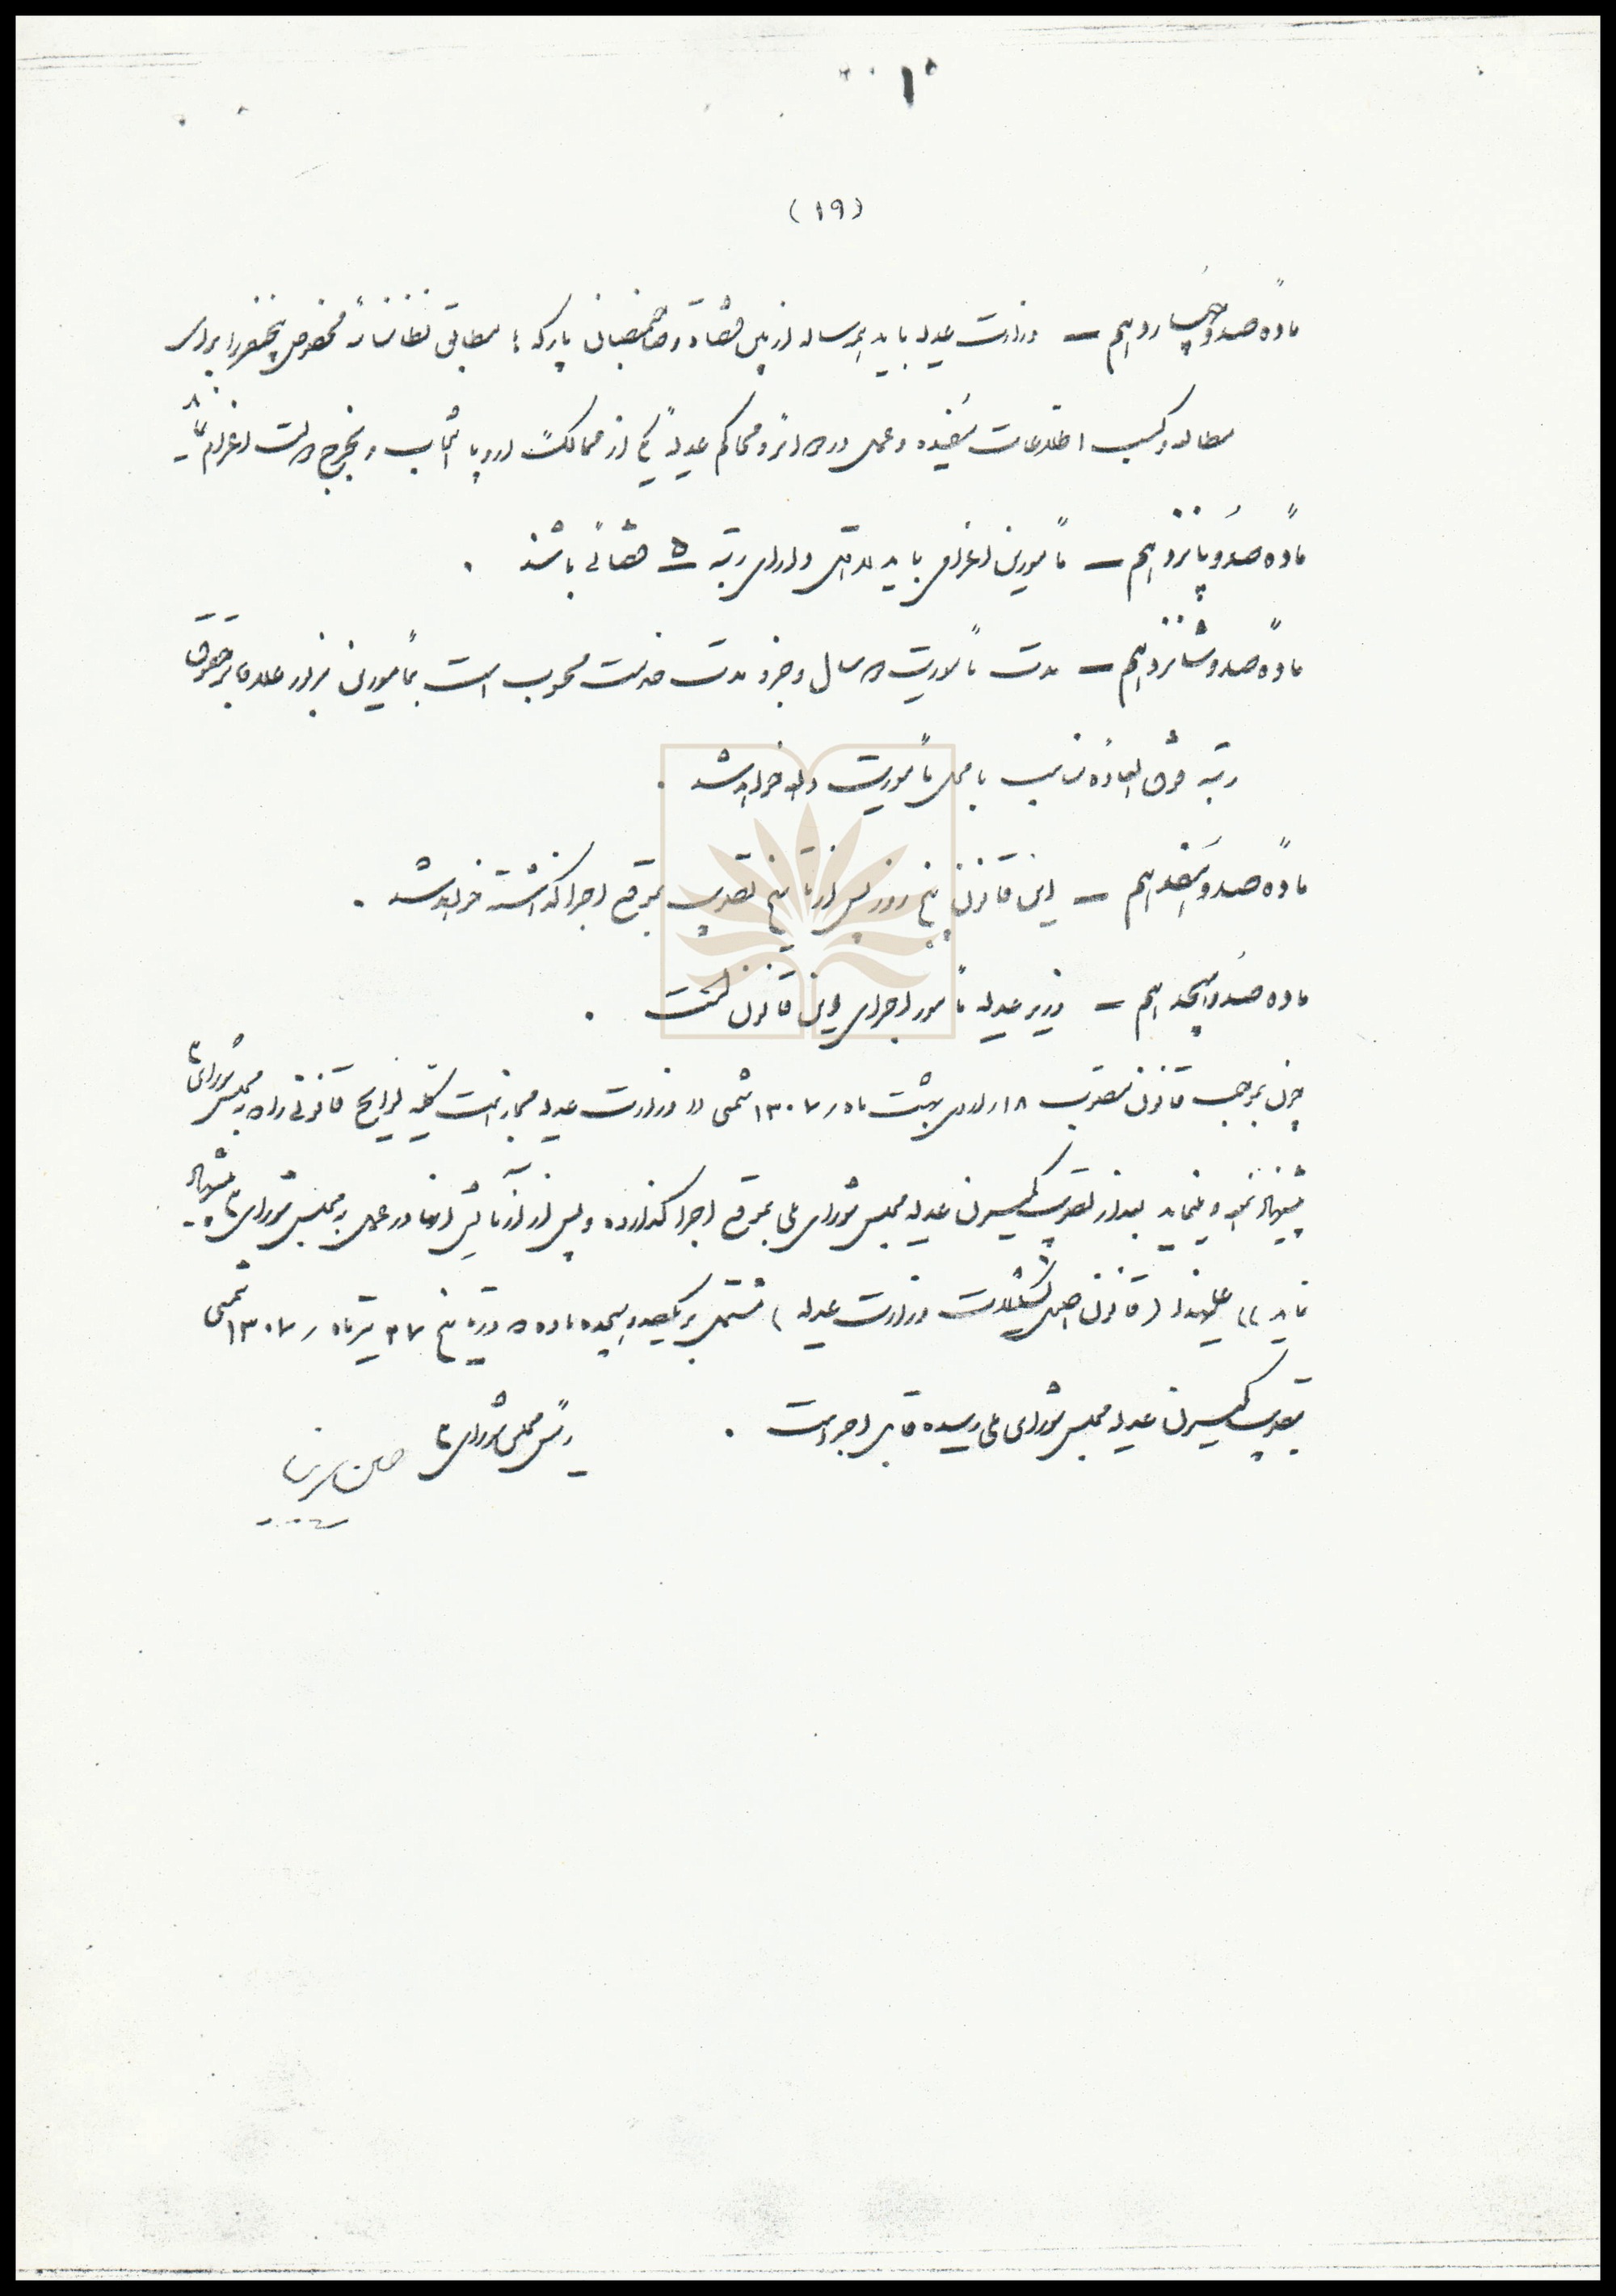 ۱۰
(۱۹)
ماده صد و چهاردهم – وزارت عدلیه باید هر ساله از بین قضاة و صاحبمنصبان پارکه ها مطابق نظامنامه مخصوص پنج نفر را برای
مطالعه و کسب اطلاعات مفیده و عملی در دوائر و محاکم عدلیه یکی از ممالک اروپا انتخاب و بخرج دولت اعزام نماید
ماده صد و پانزدهم – مأمورین اعزامی باید لااقل دارای رتبه ۵ قضائی باشند .
ماده صد و شانزدهم – مدت مأموریت دو سال و جزو مدت خدمت محسوب است بمأمورین مزبور علاوه بر حقوق
رتبه فوق العاده متناسب با محل مأموریت داده خواهد شد .
ماده صد و هفدهم – این قانون پنج روز پس از تاریخ تصویب بموقع اجرا گذاشته خواهد شد .
ماده صد و هیجدهم – وزیر عدلیه مأمور اجرای این قانون است .
چون بموجب قانون مصوب ۱۸ اردی بهشت ماه ۱۳۰۷ شمسی (( وزارت عدلیه مجاز است کلیه لوایح قانونی را که به مجلس شورای ملی
پیشنهاد نموده و مینماید بعد از تصویب کمیسیون عدلیه مجلس شورای ملی بموقع اجرا گذارده و پس از آزمایش آنها در عمل به مجلس شورای ملی پیشنهاد
نماید )) علیهذا (قانون اصول تشکیلات وزارت عدلیه) مشتمل بر یکصد و هیجده ماده که در تاریخ ۲۷ تیر ماه ۱۳۰۷ شمسی
بتصویب کمیسیون عدلیه مجلس شورای ملی رسیده قابل اجرا است .
رئیس مجلس شورای ملی